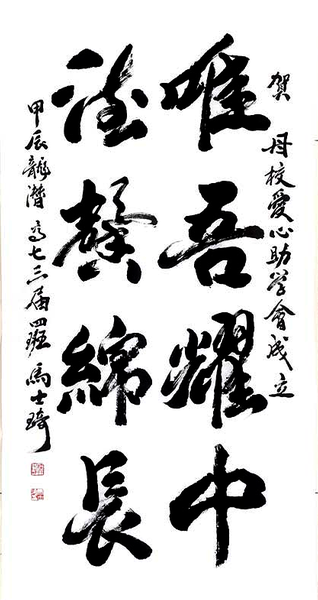 贺 母校愛心助学會成立
唯吾耀中
德馨綿長
甲辰龍潛 高七三届四班 馬士琦